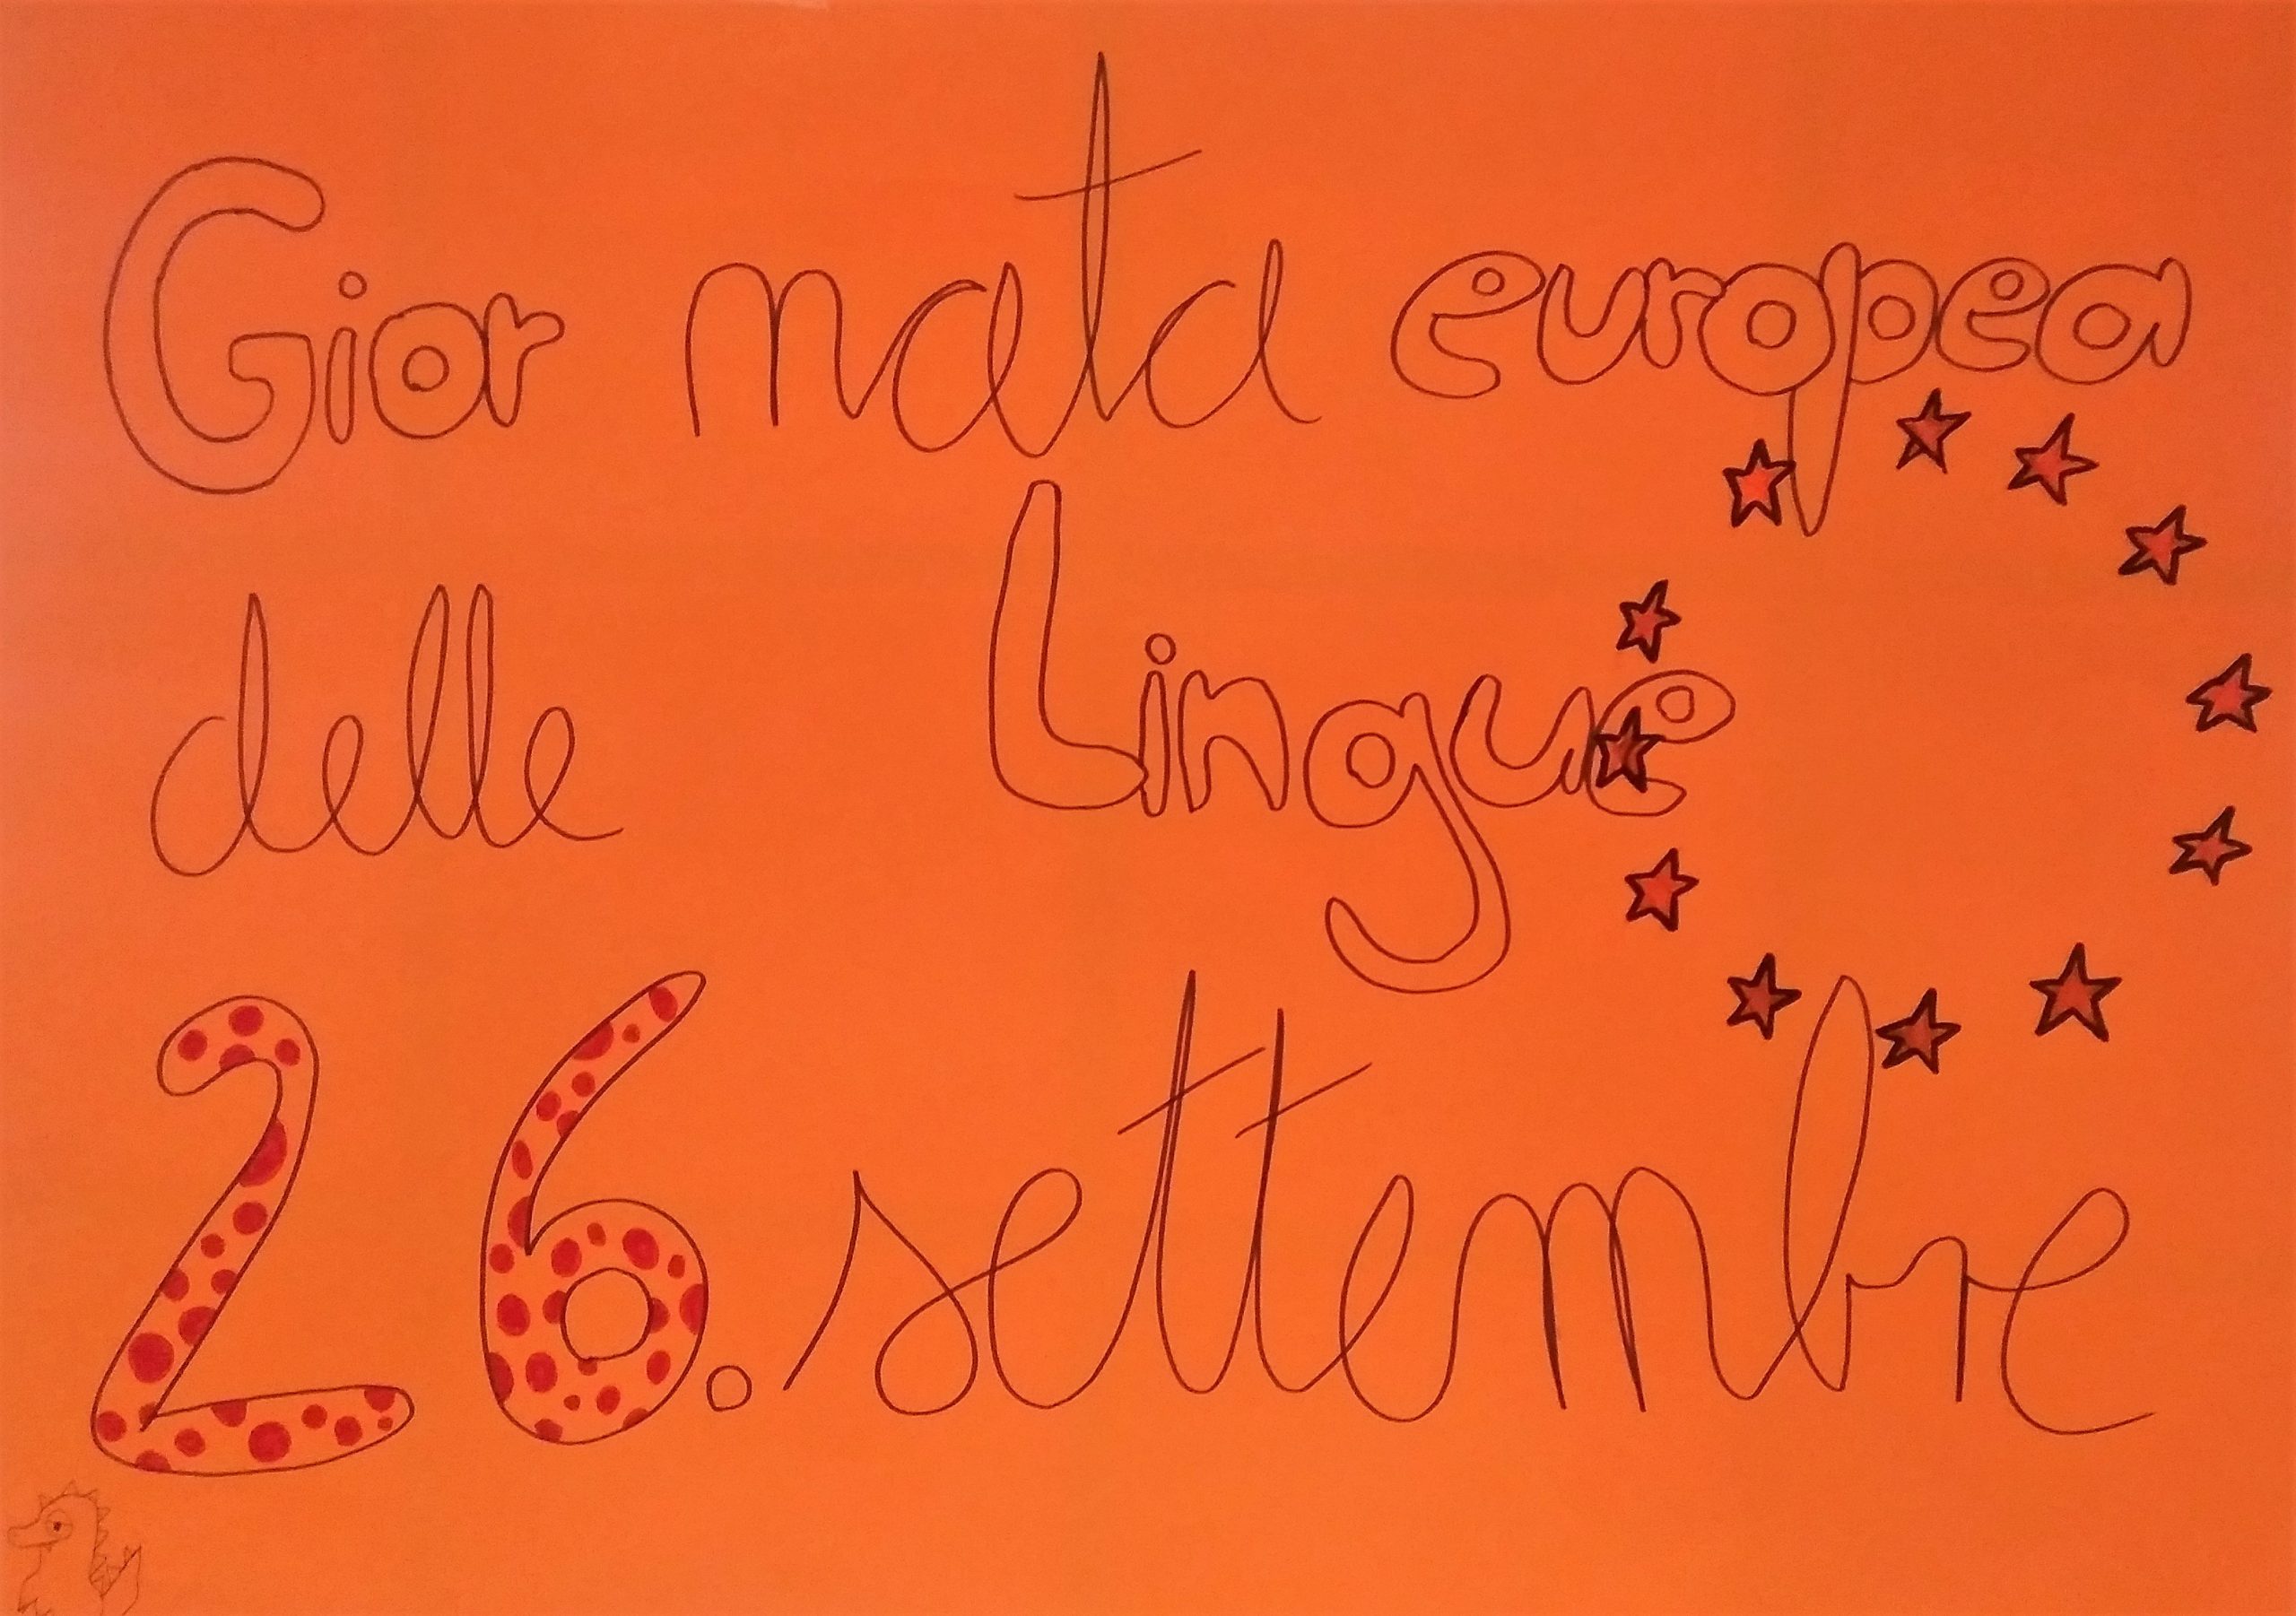 Gior nata europea
delle Lingue
26. settembre